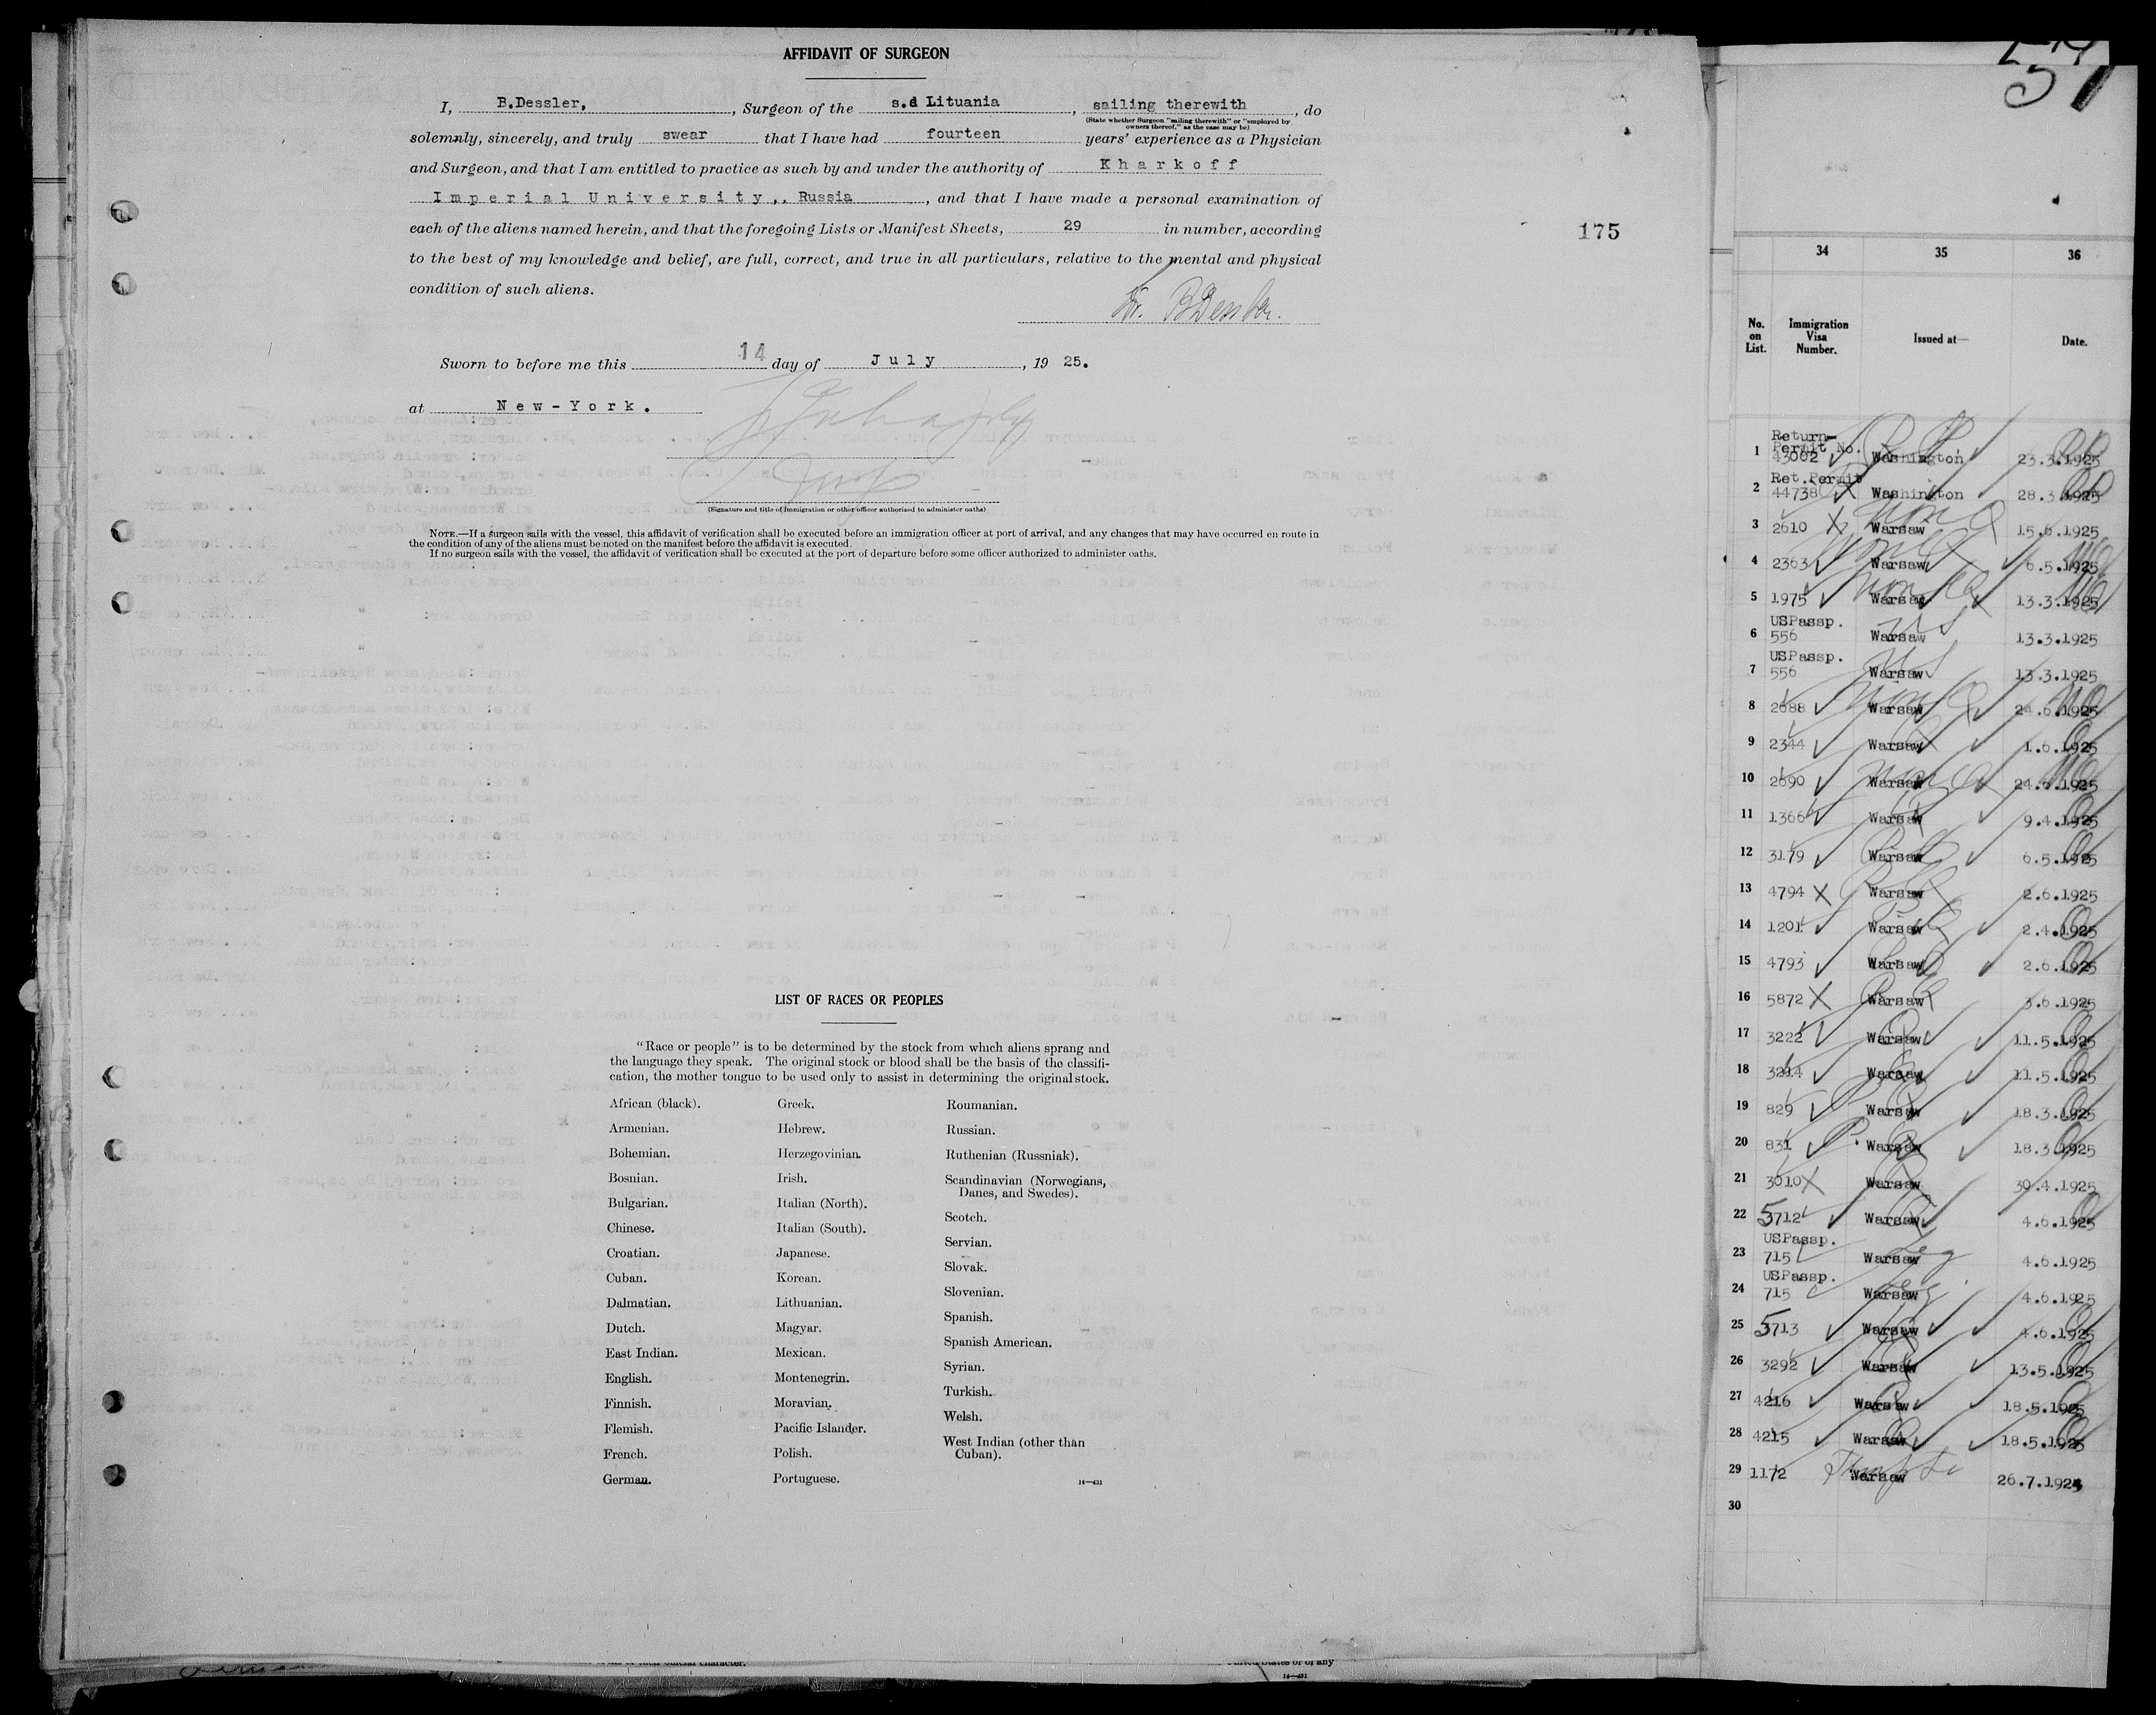 AFFIDAVIT OF SURGEON
I, B.Dessler, , Surgeon of the s.s Lituania , sailing therewith , do
(State whether Surgeon "sailing therewith" or "employed by
owners thereof," as the case may be)
solemnly, sincerely, and truly swear that I have had fourteen years' experience as a Physician
and Surgeon, and that I am entitled to practice as such by and under the authority of Kharkoff
Imperial University,. Russia , and that I have made a personal examination of
each of the aliens named herein, and that the foregoing Lists or Manifest Sheets, 29 in number, according
to the best of my knowledge and belief, are full, correct, and true in all particulars, relative to the mental and physical
condition of such aliens.
Dr. BDessler.
Sworn to before me this 14 day of July , 19 25.
at New-York.
(Signature and title of Immigration or other officer authorized to administer oaths)
NOTE.—If a surgeon sails with the vessel, this affidavit of verification shall be executed before an immigration officer at port of arrival, and any changes that may have occurred en route in
the condition of any of the aliens must be noted on the manifest before the affidavit is executed.
If no surgeon sails with the vessel, the affidavit of verification shall be executed at the port of departure before some officer authorized to administer oaths.
175
LIST OF RACES OR PEOPLES
"Race or people" is to be determined by the stock from which aliens sprang and
the language they speak. The original stock or blood shall be the basis of the classifi-
cation, the mother tongue to be used only to assist in determining the original stock.
African (black).
Armenian.
Bohemian.
Bosnian.
Bulgarian.
Chinese.
Croatian.
Cuban.
Dalmatian.
Dutch.
East Indian.
English.
Finnish.
Flemish.
French.
German.
Greek.
Hebrew.
Herzegovinian.
Irish.
Italian (North).
Italian (South).
Japanese.
Korean.
Lithuanian.
Magyar.
Mexican.
Montenegrin.
Moravian.
Pacific Islander.
Polish.
Portuguese.
Roumanian.
Russian.
Ruthenian (Russniak).
Scandinavian (Norwegians,
Danes, and Swedes).
Scotch.
Servian.
Slovak.
Slovenian.
Spanish.
Spanish American.
Syrian.
Turkish.
Welsh.
West Indian (other than
Cuban).
14—431
51
34 35 36
No. on List. Immigration Visa Number. Issued at— Date.
Return-
Permit No.
1 43002 Washington 23.3.1925
Ret.Permit
2 44738 Washington 28.3.1925
3 2610 Warsaw 15.6.1925
4 2363 Warsaw 6.5.1925
5 1975 Warsaw 13.3.1925
USPassp.
6 556 Warsaw 13.3.1925
USPassp.
7 556 Warsaw 13.3.1925
8 2688 Warsaw 24.6.1925
9 2344 Warsaw 1.6.1925
10 2690 Warsaw 24.6.1925
11 1366 Warsaw 9.4.1925
12 3179 Warsaw 6.5.1925
13 4794 Warsaw 2.6.1925
14 1201 Warsaw 2.4.1925
15 4793 Warsaw 2.6.1925
16 5872 Warsaw 3.6.1925
17 3222 Warsaw 11.5.1925
18 3214 Warsaw 11.5.1925
19 829 Warsaw 18.3.1925
20 831 Warsaw 18.3.1925
21 3010 Warsaw 30.4.1925
22 5712 Warsaw 4.6.1925
USPassp.
23 715 Warsaw 4.6.1925
USPassp.
24 715 Warsaw 4.6.1925
25 5713 Warsaw 4.6.1925
26 3292 Warsaw 13.5.1925
27 4216 Warsaw 18.5.1925
28 4215 Warsaw 18.5.1925
29 1172 Warsaw 26.7.1924
30
United States or of any
14—431